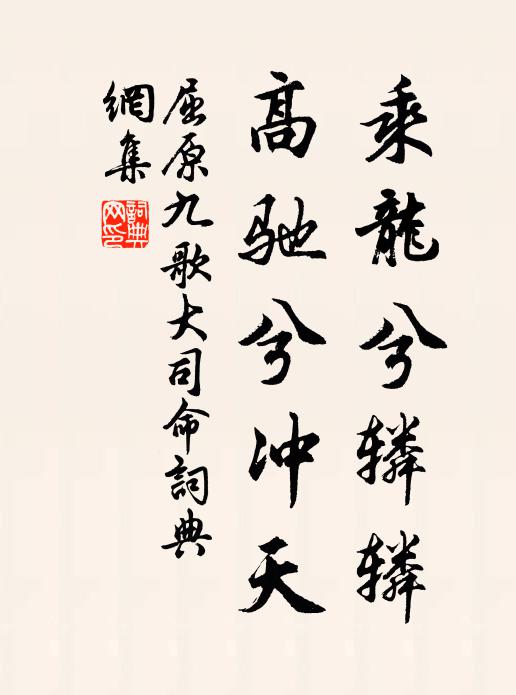 乘龍兮轔轔
高驰兮冲天
屈原九歌大司命詞典
網集
詞典
网印